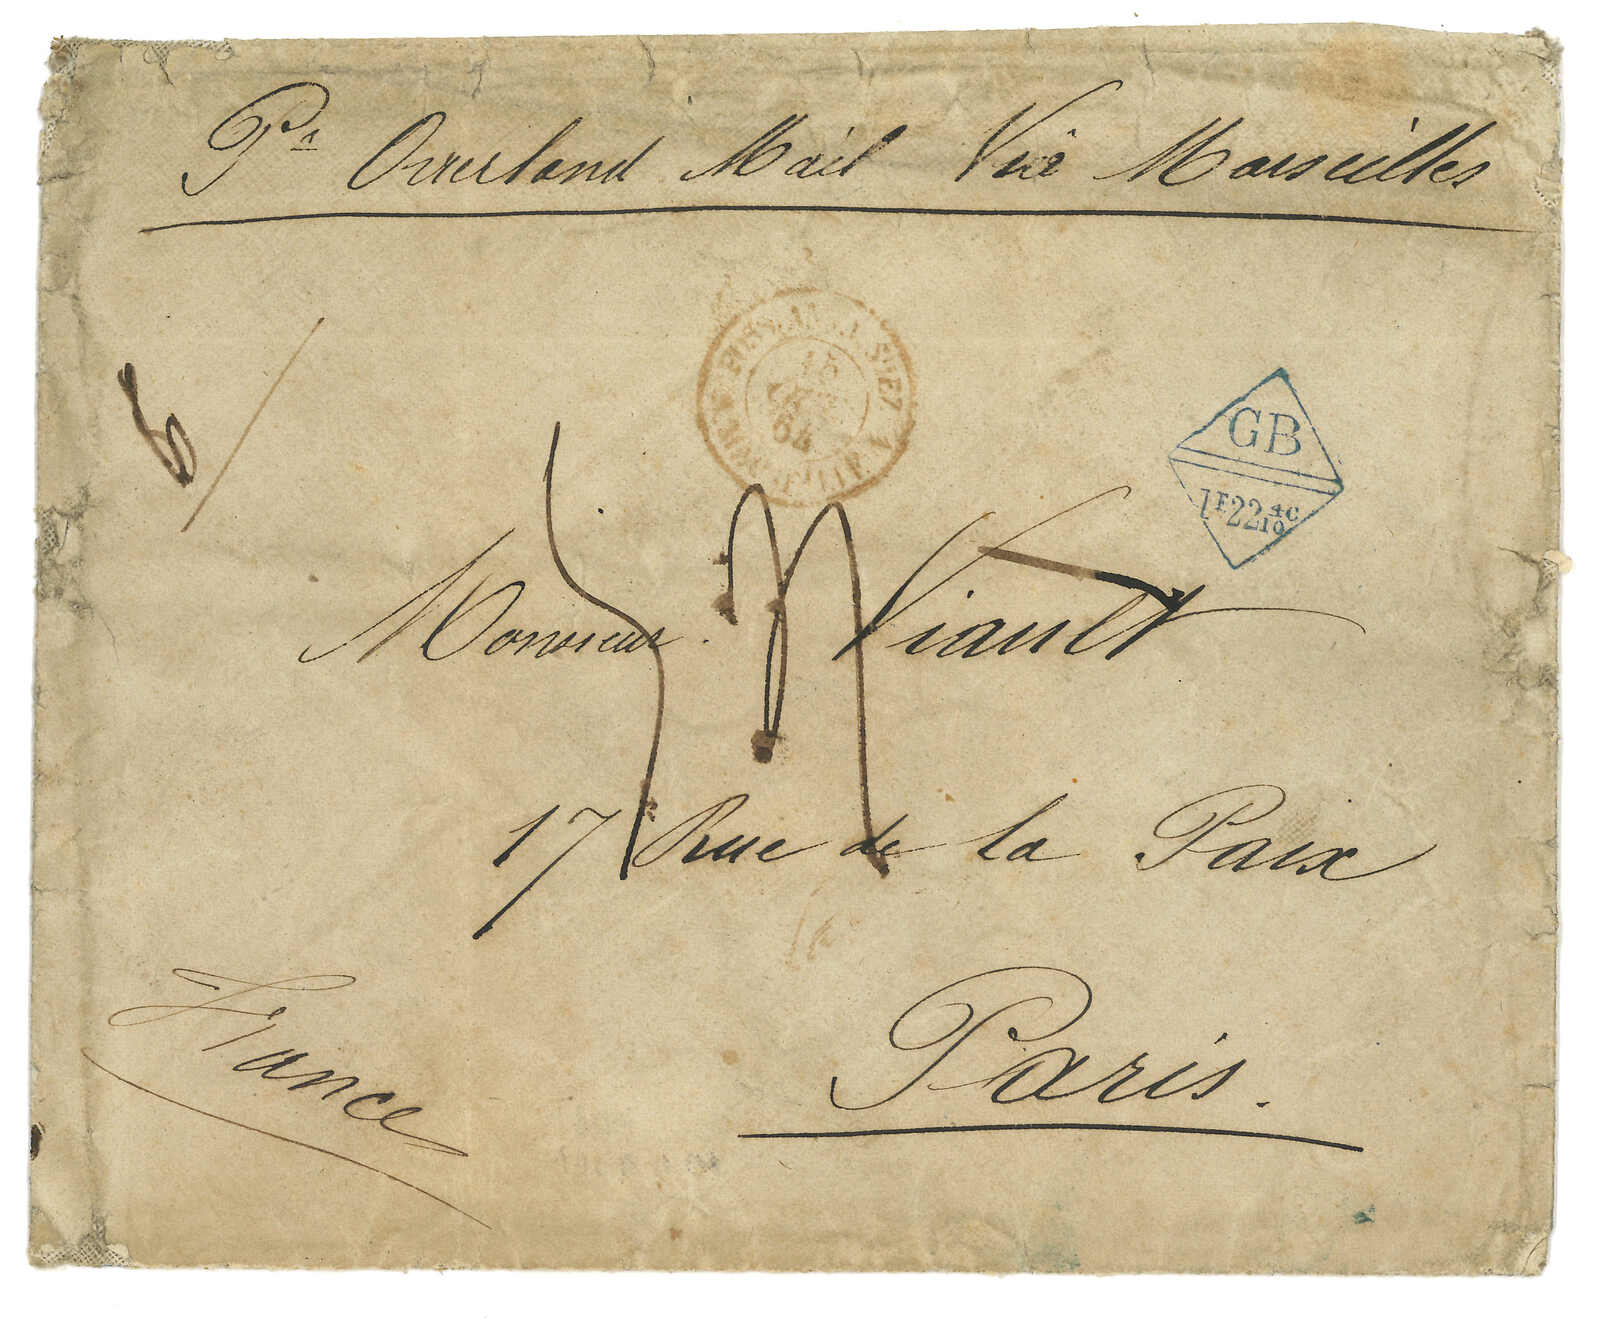 Pr Overland Mail Via Marseilles
15
64
GB
1F 22 4C/10
6/
Monsieur Viault
17 Rue de la Paix
Paris.
France